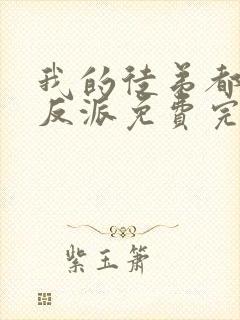 我的徒弟都
反派免费完
紫玉箫